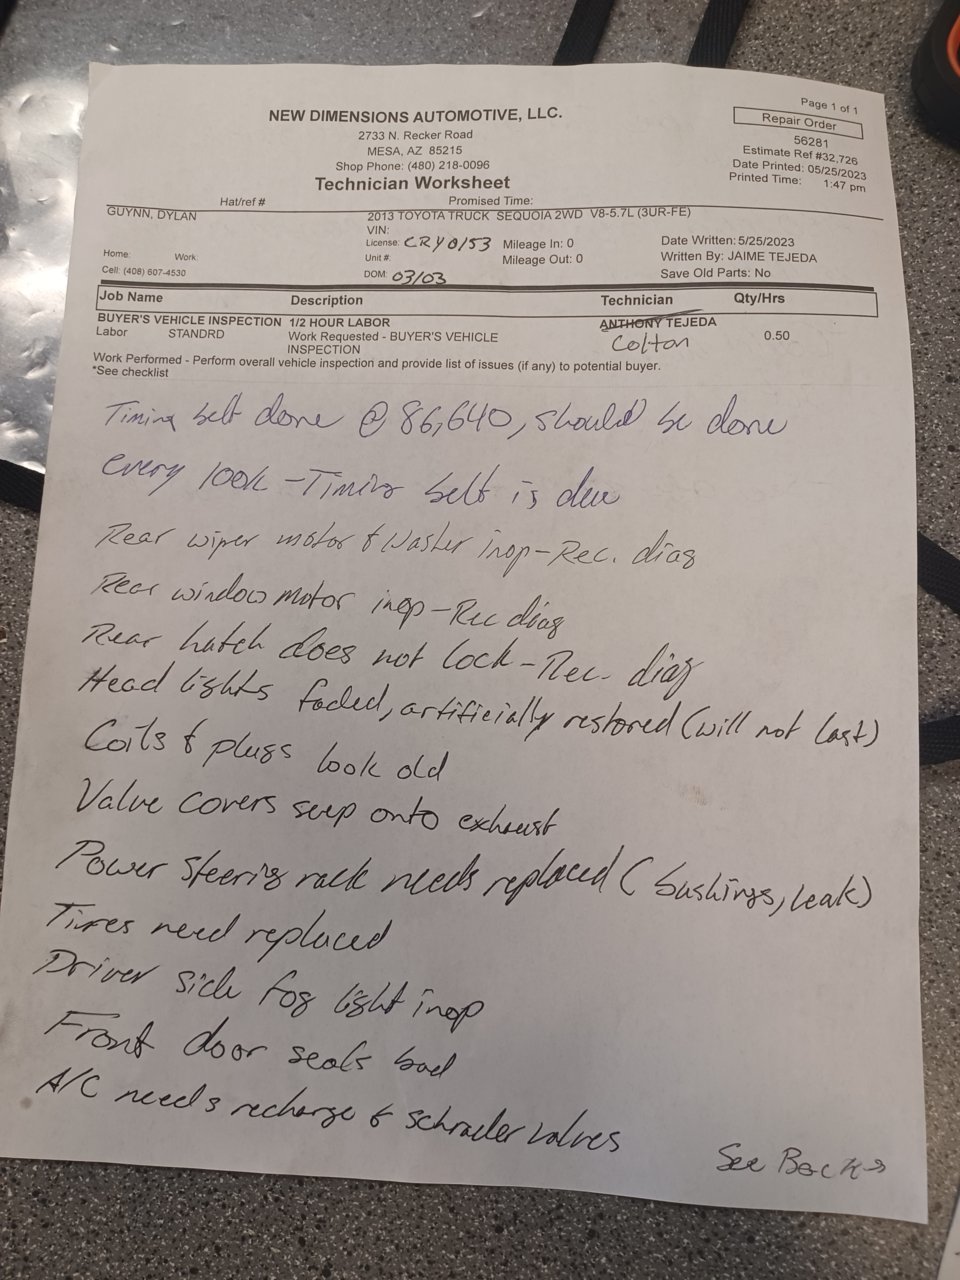 NEW DIMENSIONS AUTOMOTIVE, LLC.
2733 N. Recker Road
MESA, AZ 85215
Shop Phone: (480) 218-0096
Technician Worksheet
Page 1 of 1
Repair Order
56281
Estimate Ref #32,726
Date Printed: 05/25/2023
Printed Time: 1:47 pm
Hat/ref # Promised Time:
GUYNN, DYLAN 2013 TOYOTA TRUCK SEQUOIA 2WD V8-5.7L (3UR-FE)
VIN:
License: CRY0153 Mileage In: 0 Date Written: 5/25/2023
Home: Work: Unit #: Mileage Out: 0 Written By: JAIME TEJEDA
Cell: (408) 607-4530 DOM: 03/03 Save Old Parts: No
Job Name Description Technician Qty/Hrs
BUYER'S VEHICLE INSPECTION 1/2 HOUR LABOR ANTHONY TEJEDA
Labor STANDRD Work Requested - BUYER'S VEHICLE INSPECTION Colton 0.50
Work Performed - Perform overall vehicle inspection and provide list of issues (if any) to potential buyer.
*See checklist
Timing belt done @ 86,640, should be done
every 100k - Timing belt is due
Rear wiper motor & Washer inop - Rec. diag
Rear window motor inop - Rec diag
Rear hatch does not lock - Rec. diag
Head lights faded, artificially restored (will not last)
Coils & plugs look old
Valve covers seep onto exhaust
Power steering rack needs replaced (bushings, leak)
Tires need replaced
Driver side fog light inop
Front door seals bad
A/C needs recharge & schrader valves
See Back →